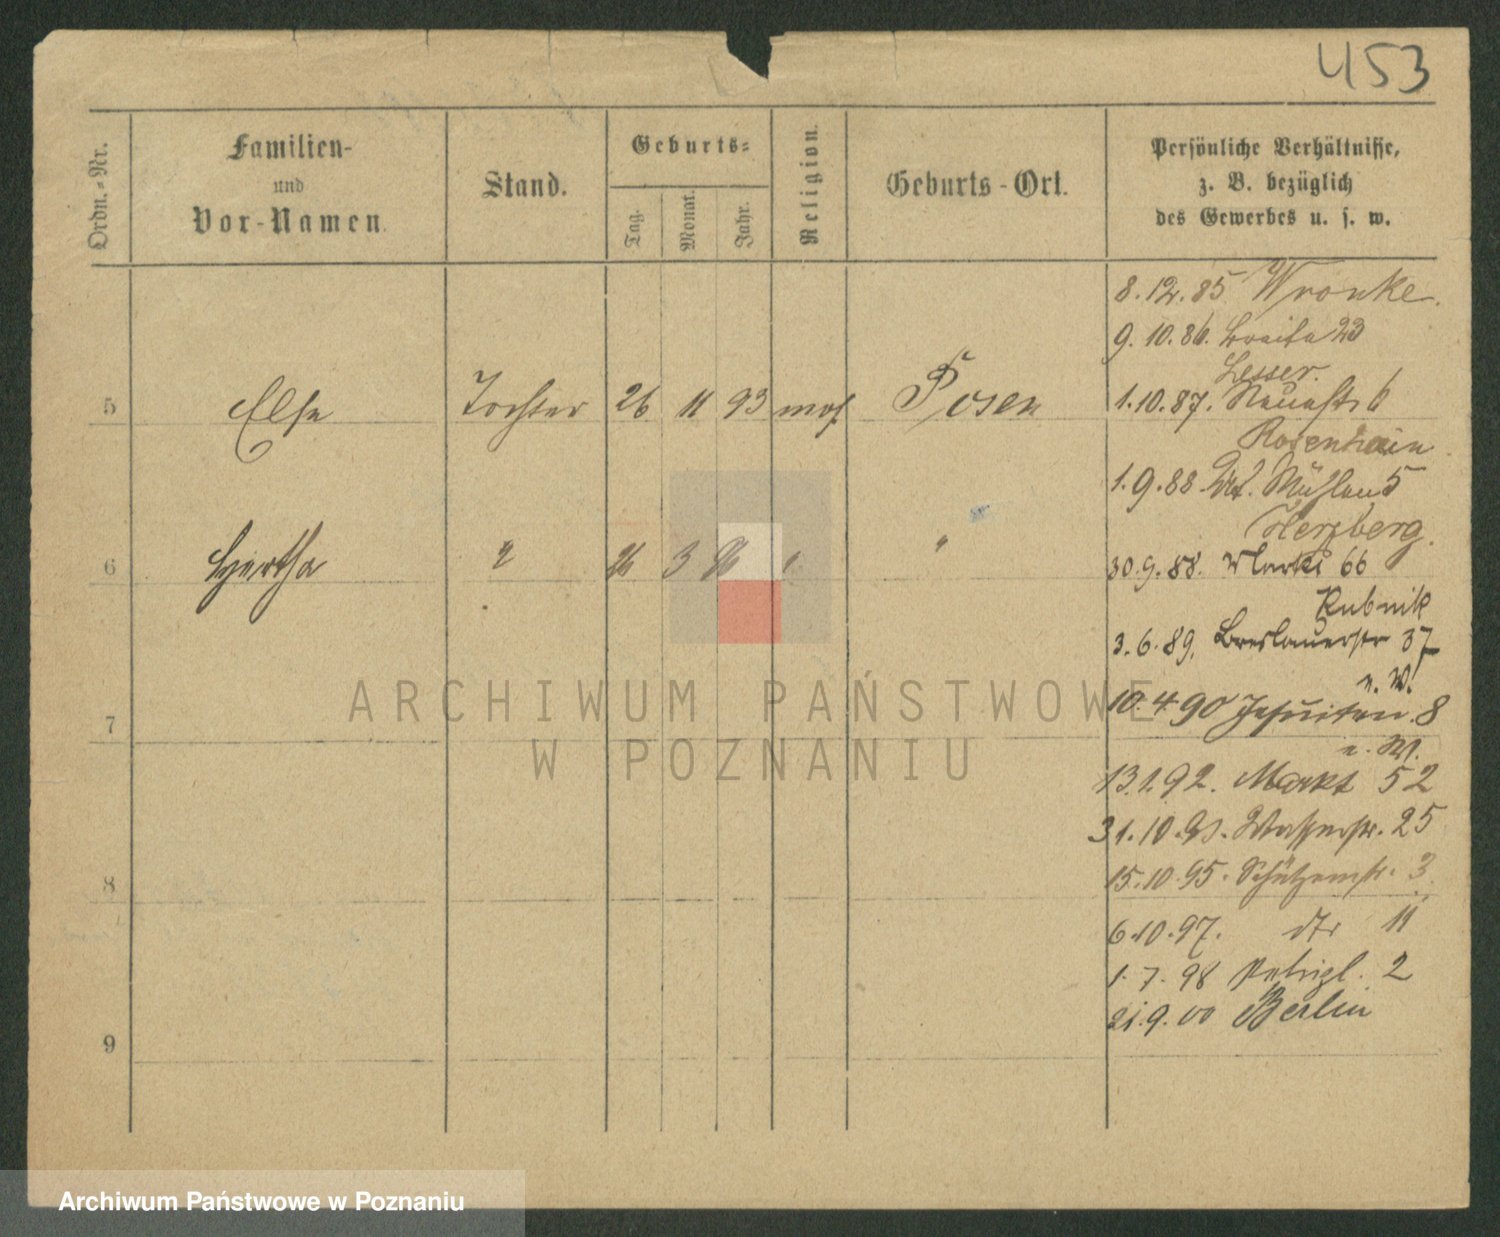 453
Ordn.-Nr.
Familien-
und
Vor-Namen.
Stand.
Geburts-
Tag.
Monat.
Jahr.
Religion.
Geburts-Ort.
Persönliche Verhältnisse,
z. B. bezüglich
des Gewerbes u. s. w.
8.12.85 Wronke.
9.10.86. Breite 23
Lesser.
5 Else Tochter 26 11 93 mos. Posen
1.10.87. Neuestr 6
Rosenhain
1.9.88. Mühlen 5
Herzberg.
6 Hertha " 3 "
30.9.88. Markt 66
Rubnik
3.6.89. Breslauerstr 37
u. W.
7
10.4.90 Jesuiten 8
u. W.
13.1.92. Markt 52
31.10.93. Wasserstr. 25
8
15.10.95. Schützenstr. 3
6.10.97. dto 11
1.7.98 Petripl. 2
21.9.00 Berlin
9
ARCHIWUM PAŃSTWOWE
W POZNANIU
Archiwum Państwowe w Poznaniu